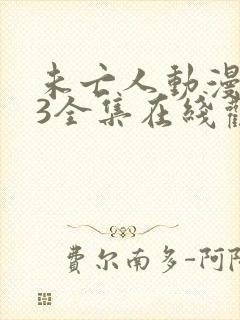 未亡人動漫
3全集在綫
費尔南多-阿